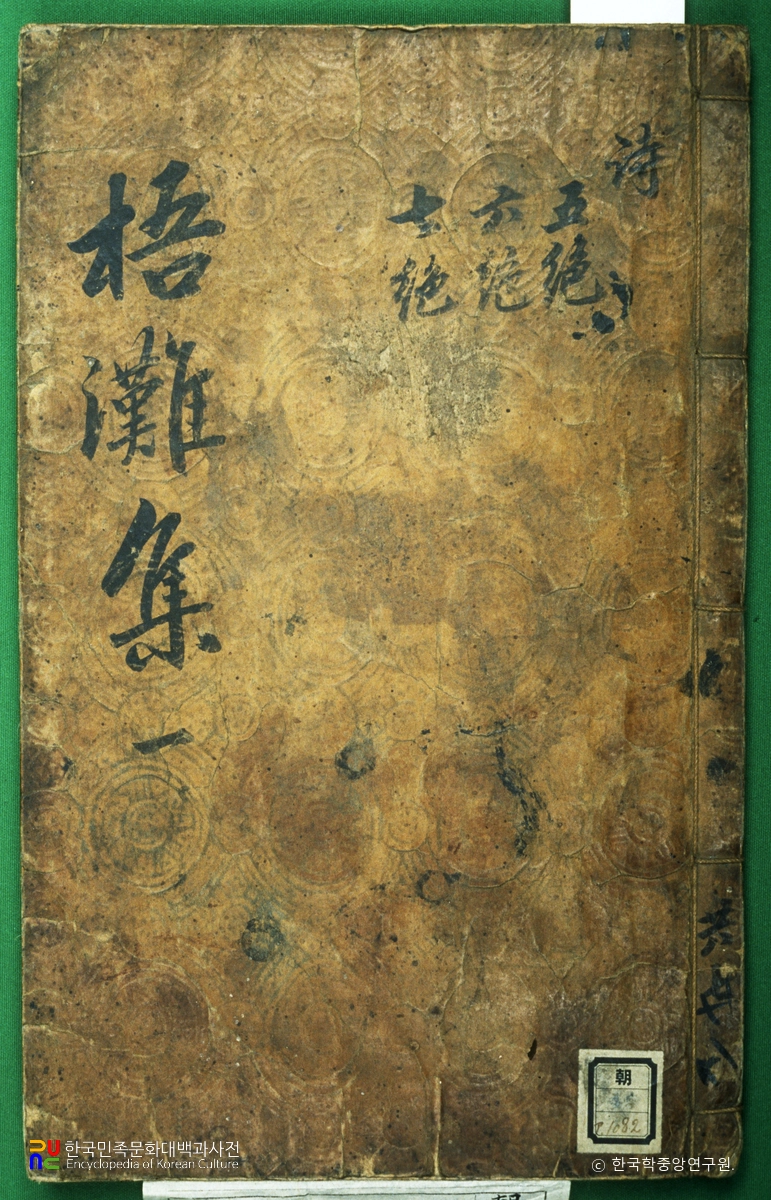 詩
五絶
六絶
七絶
梧灘集 一
共
朝
한국민족문화대백과사전
Encyclopedia of Korean Culture
© 한국학중앙연구원.